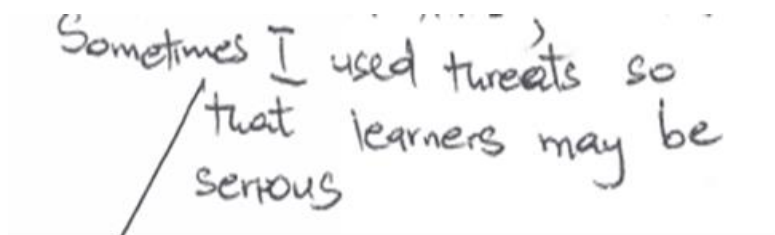 Sometimes I used threats so
that learners may be
serious